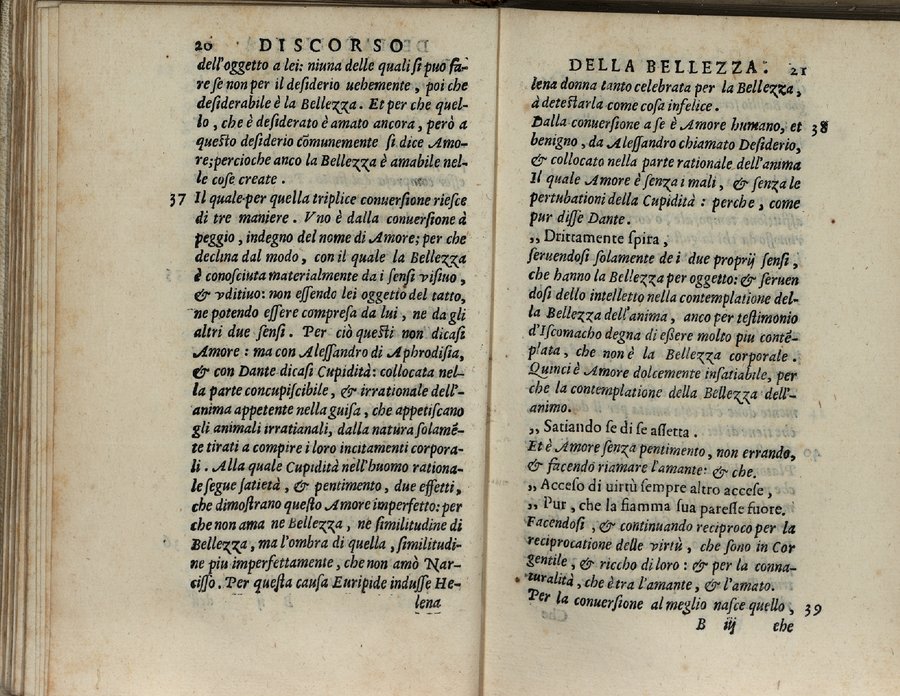 20 DISCORSO
dell'oggetto a lei: niuna delle quali si puo fa-
re se non per il desiderio uehemente, poi che
desiderabile è la Bellezza. Et per che quel-
lo, che è desiderato è amato ancora, però a
questo desiderio cõmunemente si dice Amo-
re; percioche anco la Bellezza è amabile nel-
le cose create.
37 Il quale per quella triplice conuersione riesce
di tre maniere. Vno è dalla conuersione à
peggio, indegno del nome di Amore; per che
declina dal modo, con il quale la Bellezza
è conosciuta materialmente da i sensi visiuo,
& vditiuo: non essendo lei oggetto del tatto,
ne potendo essere compresa da lui, ne da gli
altri due sensi. Per ciò questi non dicasi
Amore: ma con Alessandro di Aphrodisia,
& con Dante dicasi Cupidità: collocata nel-
la parte concupiscibile, & irrationale dell'-
anima appetente nella guisa, che appetiscano
gli animali irratianali, dalla natura solamẽ-
te tirati a compire i loro incitamenti corpora-
li. Alla quale Cupidità nell'huomo rationa-
le segue satietà, & pentimento, due effetti,
che dimostrano questo Amore imperfetto: per
che non ama ne Bellezza, ne similitudine di
Bellezza, ma l'ombra di quella, similitudi-
ne piu imperfettamente, che non amò Nar-
cisso. Per questa causa Euripide indusse He-
lena
DELLA BELLEZZA. 21
lena donna tanto celebrata per la Bellezza,
à detestarla come cosa infelice.
Dalla conuersione a se è Amore humano, et 38
benigno, da Alessandro chiamato Desiderio,
& collocato nella parte rationale dell'anima
Il quale Amore è senza i mali, & senza le
pertubationi della Cupidità: perche, come
pur disse Dante.
,, Drittamente spira,
seruendosi solamente de i due proprij sensi,
che hanno la Bellezza per oggetto: & seruen
dosi dello intelletto nella contemplatione del-
la Bellezza dell'anima, anco per testimonio
d'Iscomacho degna di essere molto piu contẽ-
plata, che non è la Bellezza corporale.
Quinci è Amore dolcemente insatiabile, per
che la contemplatione della Bellezza dell'-
animo.
,, Satiando se di se assetta.
Et è Amore senza pentimento, non errando,
& facendo riamare l'amante: & che.
,, Acceso di uirtù sempre altro accese,
,, Pur, che la fiamma sua paresse fuore.
Facendosi, & continuando reciproco per la
reciprocatione delle virtù, che sono in Cor
gentile, & riccho di loro: & per la conna-
turalità, che è tra l'amante, & l'amato.
Per la conuersione al meglio nasce quello, 39
B iij che